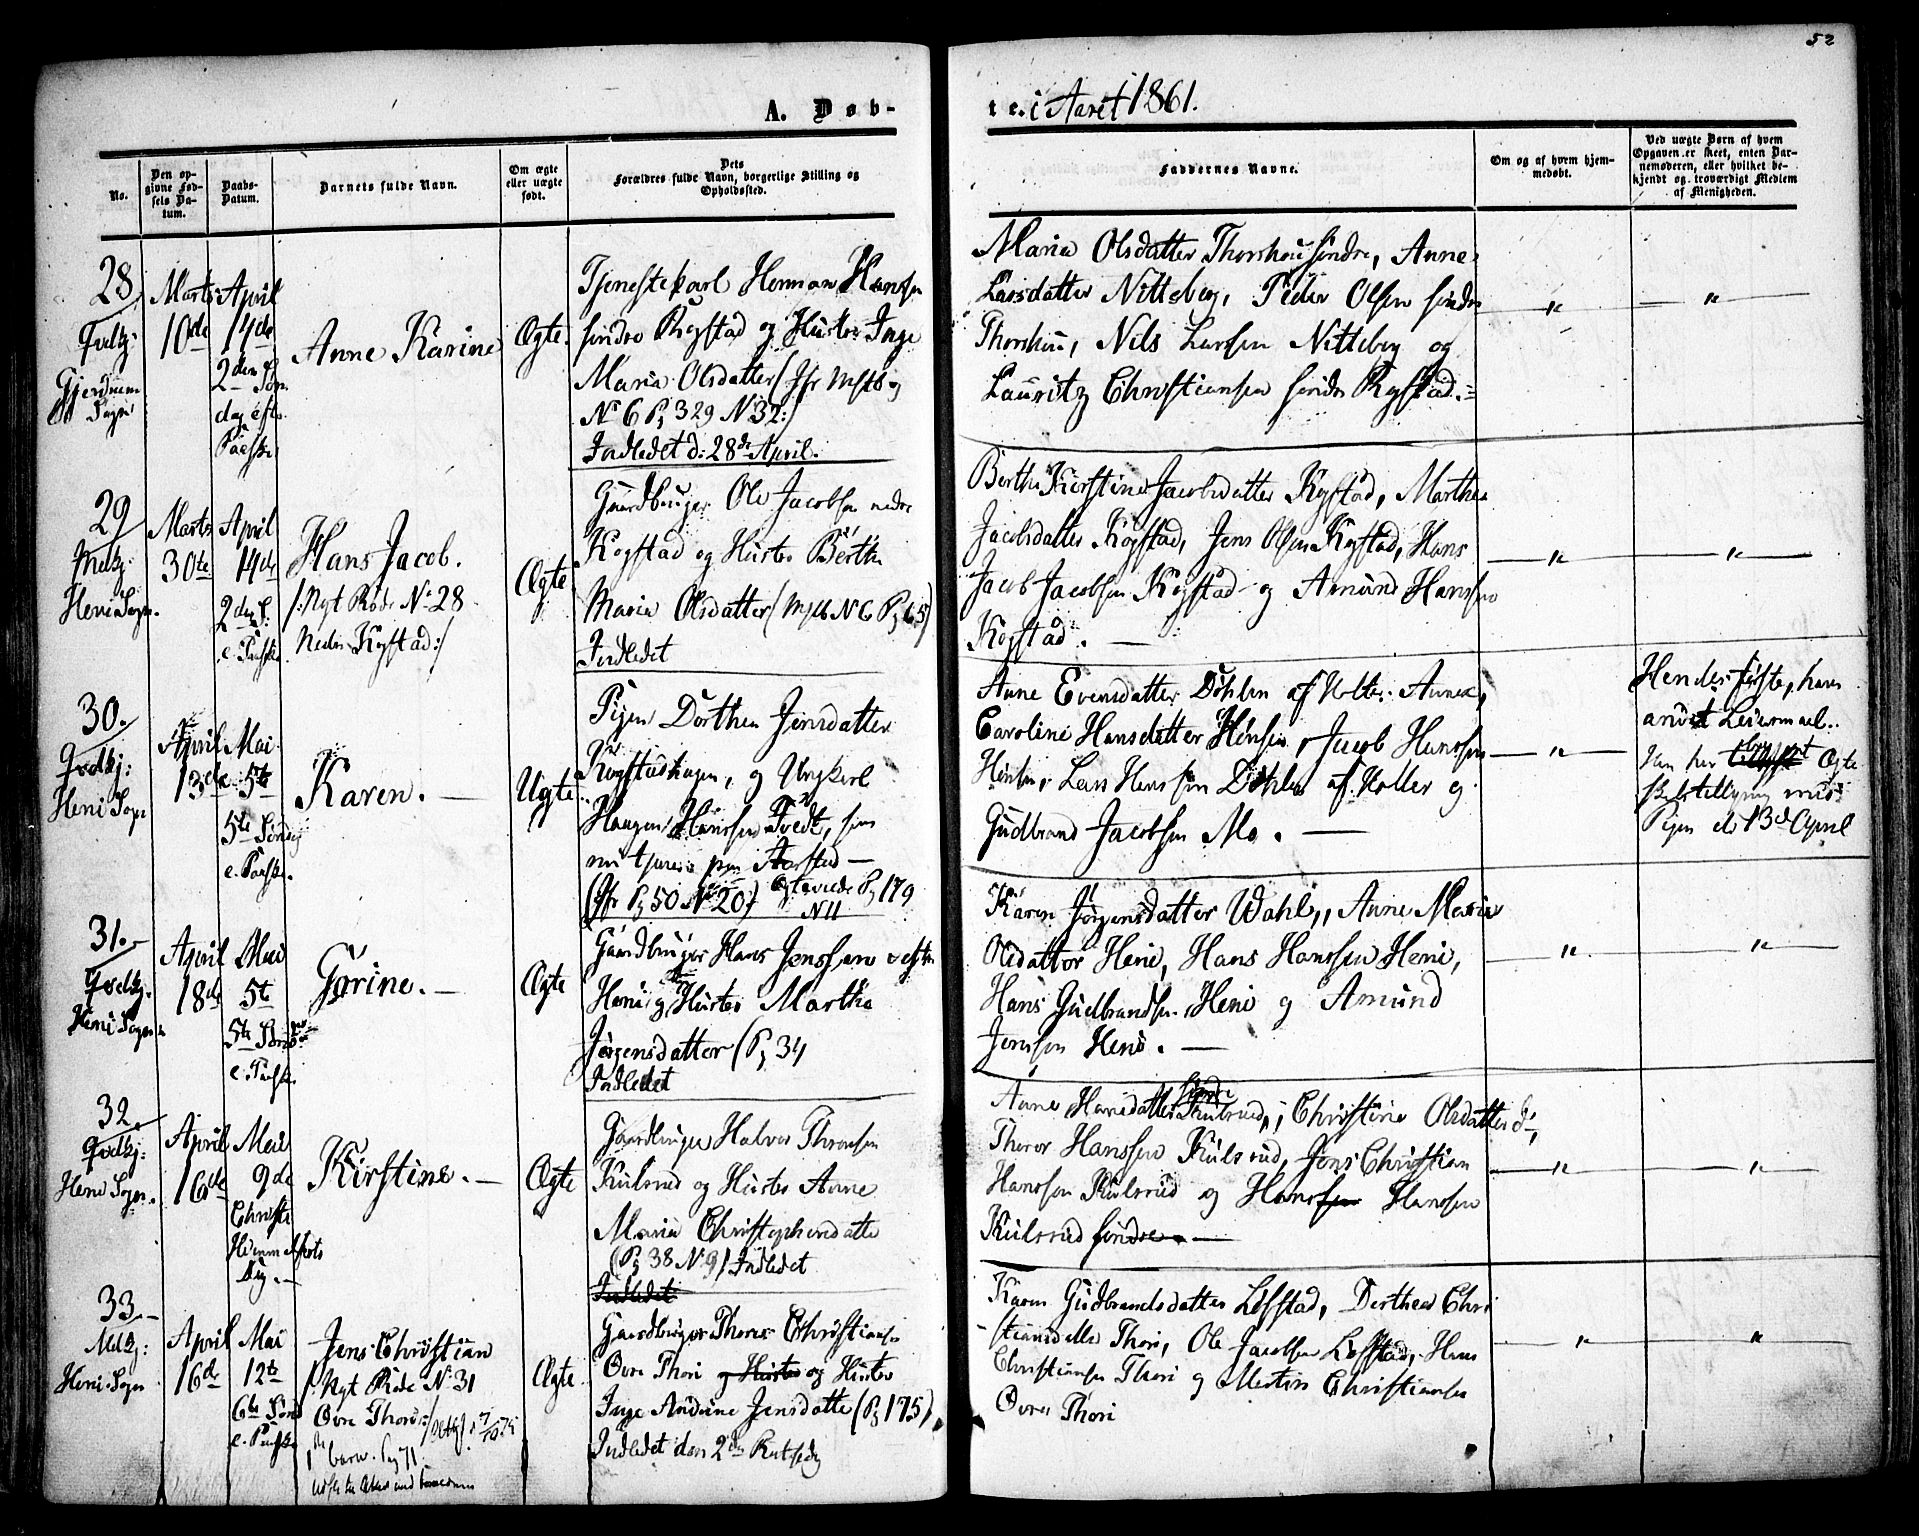 52
A. Døb-
te. i Aaret 1861.
No.
Den op-
givne Fød-
sels Da-
tum.
Daabs-
Datum.
Barnets fulde Navn.
Om ægte
eller uægte
født.
Dets
Forældres fulde Navn, borgerlige Stilling og
Opholdssted.
Faddernes Navne.
Om og af hvem hjem-
medøbt.
Ved uægte Børn af hvem
Opgaven er skeet, enten Bar-
nemoderen, eller hvilket be-
kjendt og troværdigt Medlem
af Menigheden.
28
Gjerdrum
Sogn
Marts
10de
April
14de
2den Søn
dag efter
Paaske
Anne Karine
Ægte.
Tjenestekarl Herman Hansen
søndre Kogstad og Hustro Inge
Maria Olsdatter (Jfr Mstb
No 6 Pg 329 N 32:/
Indledet d: 28de April.
Maria Olsdatter Thorshou søndre, Anne
Larsdatter Nitteberg, Peder Olsen søndre
Thorshou, Nils Larsen Nitteberg og
Lauritz Christiansen søndre Kogstad.
"
"
29
Heni Sogn.
Marts
30te
April
14de
2den S.
e. Paaske
Hans Jacob.
/: Nyt Rode No 28
Nedre Kogstad :/
Ægte
Gaardbruger Ole Jacobsen nedre
Kogstad og Hustro Berthe
Maria Olsdatter (Mstb N 6 Pg 65)
Indledet
Berthe Kirstine Jacobsdatter Kogstad, Marthe
Jacobsdatter Kogstad, Jens Olsen Kogstad, Hans
Jacob Jacobsen Kogstad og Amund Hansen
Kogstad.
"
"
30.
Heni Sogn
April
13de
Mai
5te
5te Søndag
e. Paaske.
Karen.
Uægte
Pigen Dorthea Jensdatter
Kogstadhagen, og Ungkarl
Haagen Hanssen Tvedt, som
nu tjener paa Aarstad
(Jfr Pg 50 No 20) Ægteviede Pg 179
N 11
Anne Evensdatter Døhlen af Holter, Anne
Caroline Hansdatter Hønsen, Jacob Hanssen
Lars Hanssen Døhlen af Holter og
Gudbrand Jacobsen Mo.
"
Hendes første, hans
andet Leiermaal.
Han har Ægte
skabstilligning med
Pigen d. 13de April
31.
Heni Sogn
April
18de
Mai
5te
5te Søndag
e. Paaske
Gørine.
Ægte
Gaardbruger Hans Jenssen vestre
Heni og Hustro Marthe
Jørgensdatter (Pg 34
Indledet
Karen Jørgensdatter Wahl, Anne Marie
Olsdatter Heni, Hans Hanssen Heni,
Hans Gudbrandsen Heni og Amund
Jenssen Heni.
"
"
32.
Heni Sogn.
April
16de
Mai
9de
Christi
Himmelfarts
Dag.
Kirstine.
Ægte
Gaardbruger Halvor Thoresen
Kulsrud og Hustro Anne
Maria Christophersdatter
(Pg 38 N 9) Indledet
Indledet
Anne Hansdatter søndre Kulsrud, Christine Olsdatter
Thoror Hanssen Kulsrud, Jens Christian
Hanssen Kulsrud og Hanssen Hanssen
Kulsrud søndre.
"
"
33.
Heni Sogn
April
16de
Mai
12te
6te Sønd
e. Paaske
Jens Christian
/: Nyt Rode No 31
Øvre Thori :/
Ægte
Gaardbruger Thorer Christiansen
Øvre Thori og Hustro og Hustro
Inge Andrine Jensdatter (Pg 175)
Indledet den 2den Rutsedag
Karen Gudbrandsdatter Løfstad, Dorthea Chri
stiansdatter Thori, Ole Jacobsen Løfstad, Hans
Christiansen Thori og Martin Christiansen
Øvre Thori
"
"